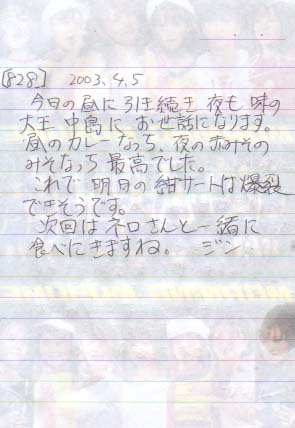 [828] 2003.4.5
今日の昼に引き続き 夜も 味の
大王 中島に お世話になります。
昼のカレーなっち、夜の赤みその
みそなっち 最高でした。
これで 明日の 紺サートは爆裂
できそうです。
次回は ネロさんと一緒に
食べにきますね。 ジン